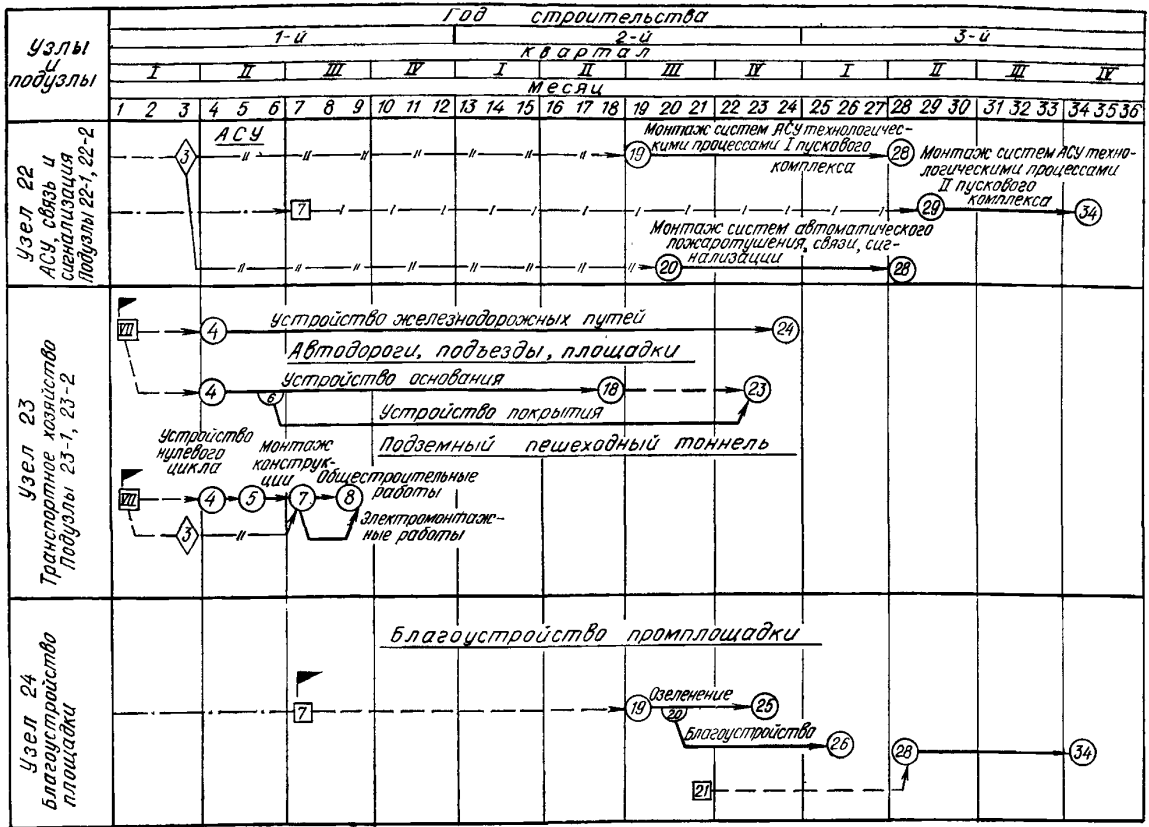 Год строительства
Узлы и подузлы
1-й 2-й 3-й
Квартал
I II III IV I II III IV I II III IV
Месяц
1 2 3 4 5 6 7 8 9 10 11 12 13 14 15 16 17 18 19 20 21 22 23 24 25 26 27 28 29 30 31 32 33 34 35 36
Узел 22
АСУ, связь и
сигнализация
Подузлы 22-1, 22-2
АСУ
3
19
Монтаж систем АСУ технологичес-
кими процессами I пускового
комплекса
28
Монтаж систем АСУ техно-
логическими процессами
II пускового
комплекса
7
29
34
Монтаж систем автоматического
пожаротушения, связи, сиг-
нализации
20
28
Узел 23
Транспортное хозяйство
Подузлы 23-1, 23-2
VII
4
Устройство железнодорожных путей
24
Автодороги, подъезды, площадки
4
Устройство основания
18
23
6
Устройство покрытия
Подземный пешеходный тоннель
Устройство
нулевого
цикла
Монтаж
конструк-
ции
Общестроительные
работы
VII
4
5
7
8
3
Электромонтаж-
ные работы
Узел 24
Благоустройство
площадки
Благоустройство промплощадки
7
19
Озеленение
25
20
Благоустройство
26
28
34
21